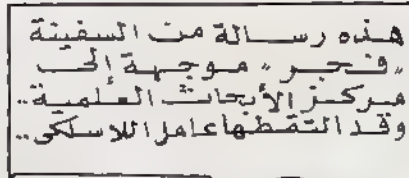 هذه رسالة من السفينة
"فجر" موجهة إلى
مركز الأبحاث العلمية..
وقد التقطها عامل اللاسلكى..